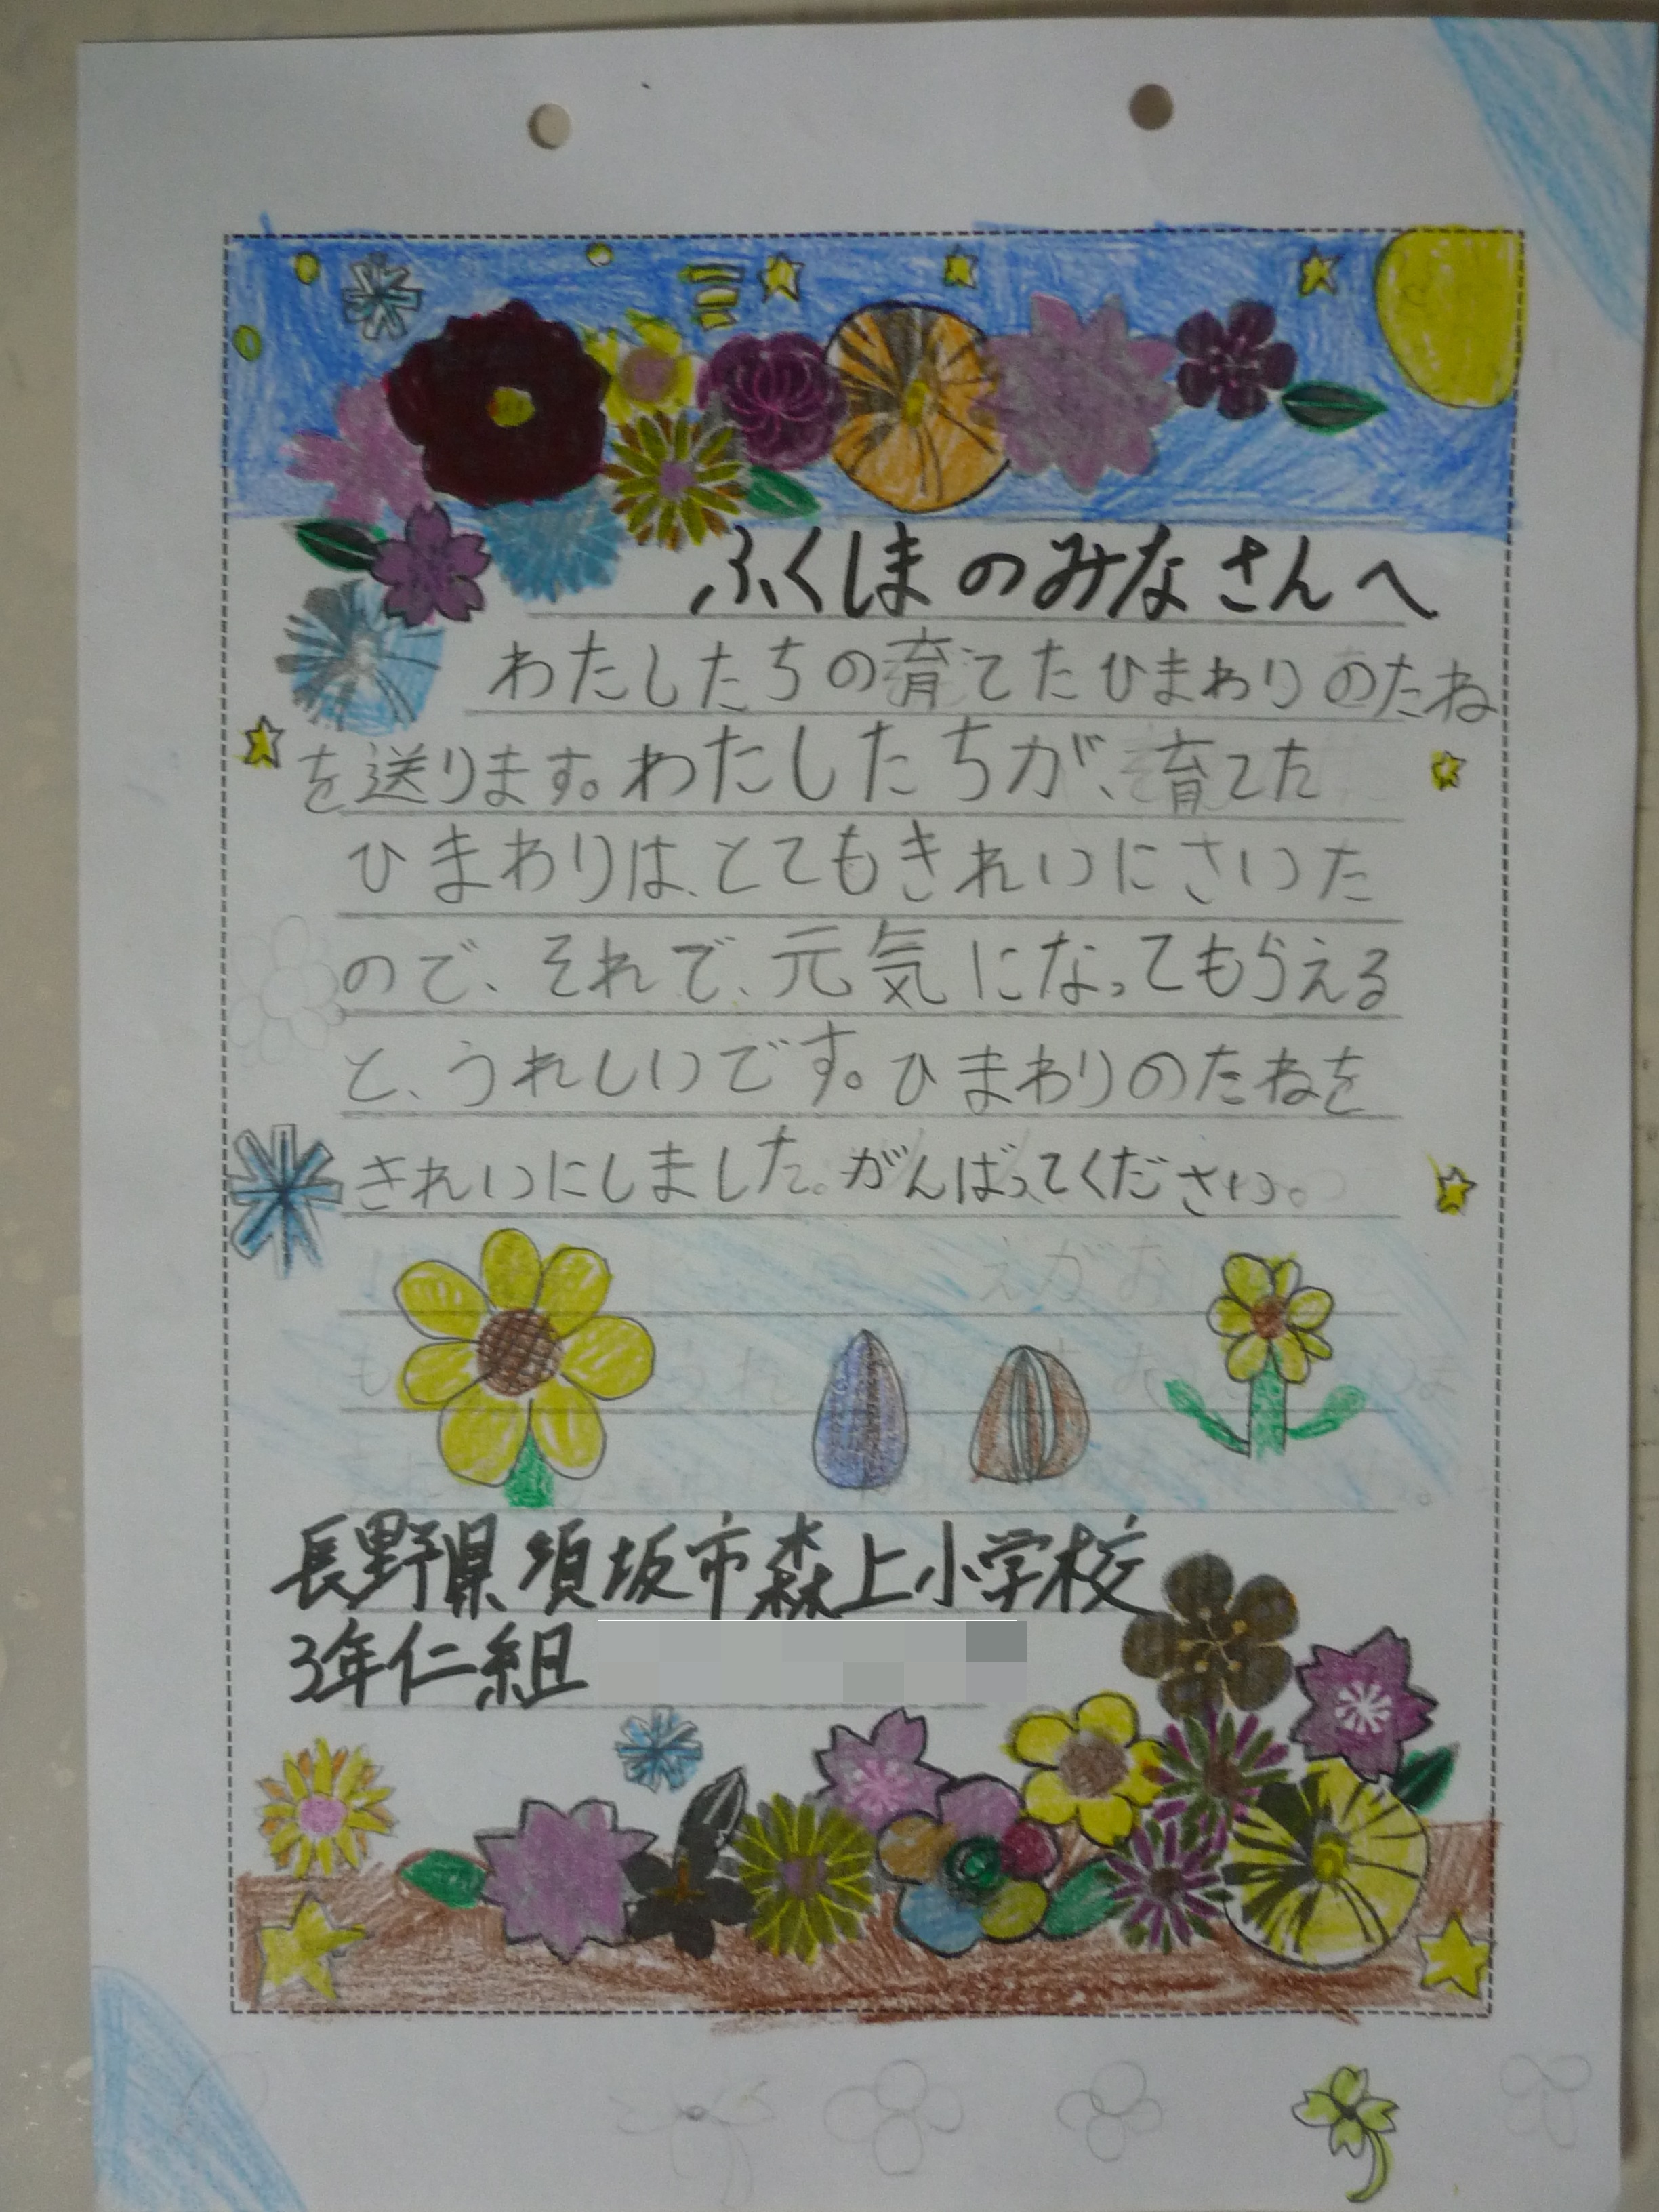 ふくしまのみなさんへ
わたしたちの育てたひまわりのたね
を送ります。わたしたちが、育てた
ひまわりは、とてもきれいにさいた
ので、それで、元気になってもらえる
と、うれしいです。ひまわりのたねを
きれいにしました。がんばってください。
長野県須坂市森上小学校
3年仁組